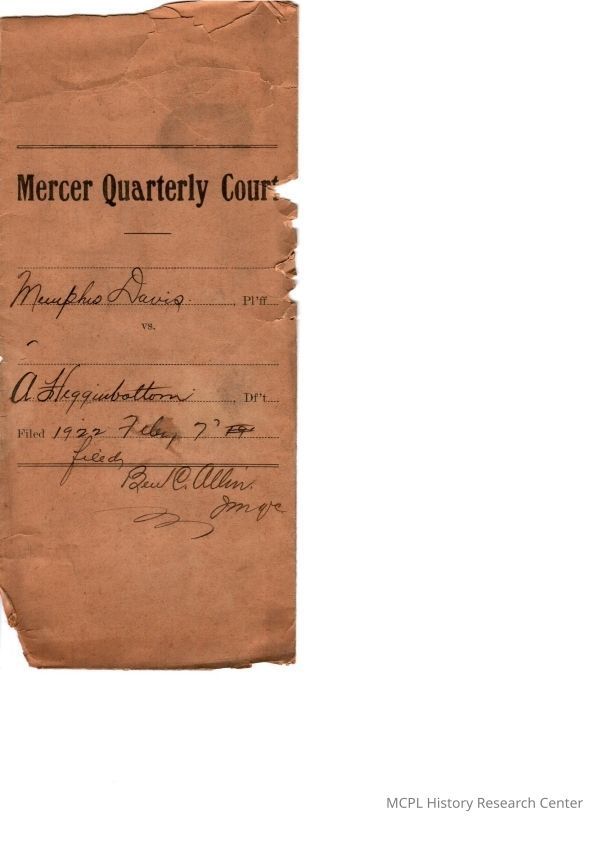 Mercer Quarterly Court
Memphis Davis. Pl'ff
vs.
A Higginbottom Df't
Filed 1922 Feby 7" 19
filed
Ben C. Allin.
MCPL History Research Center